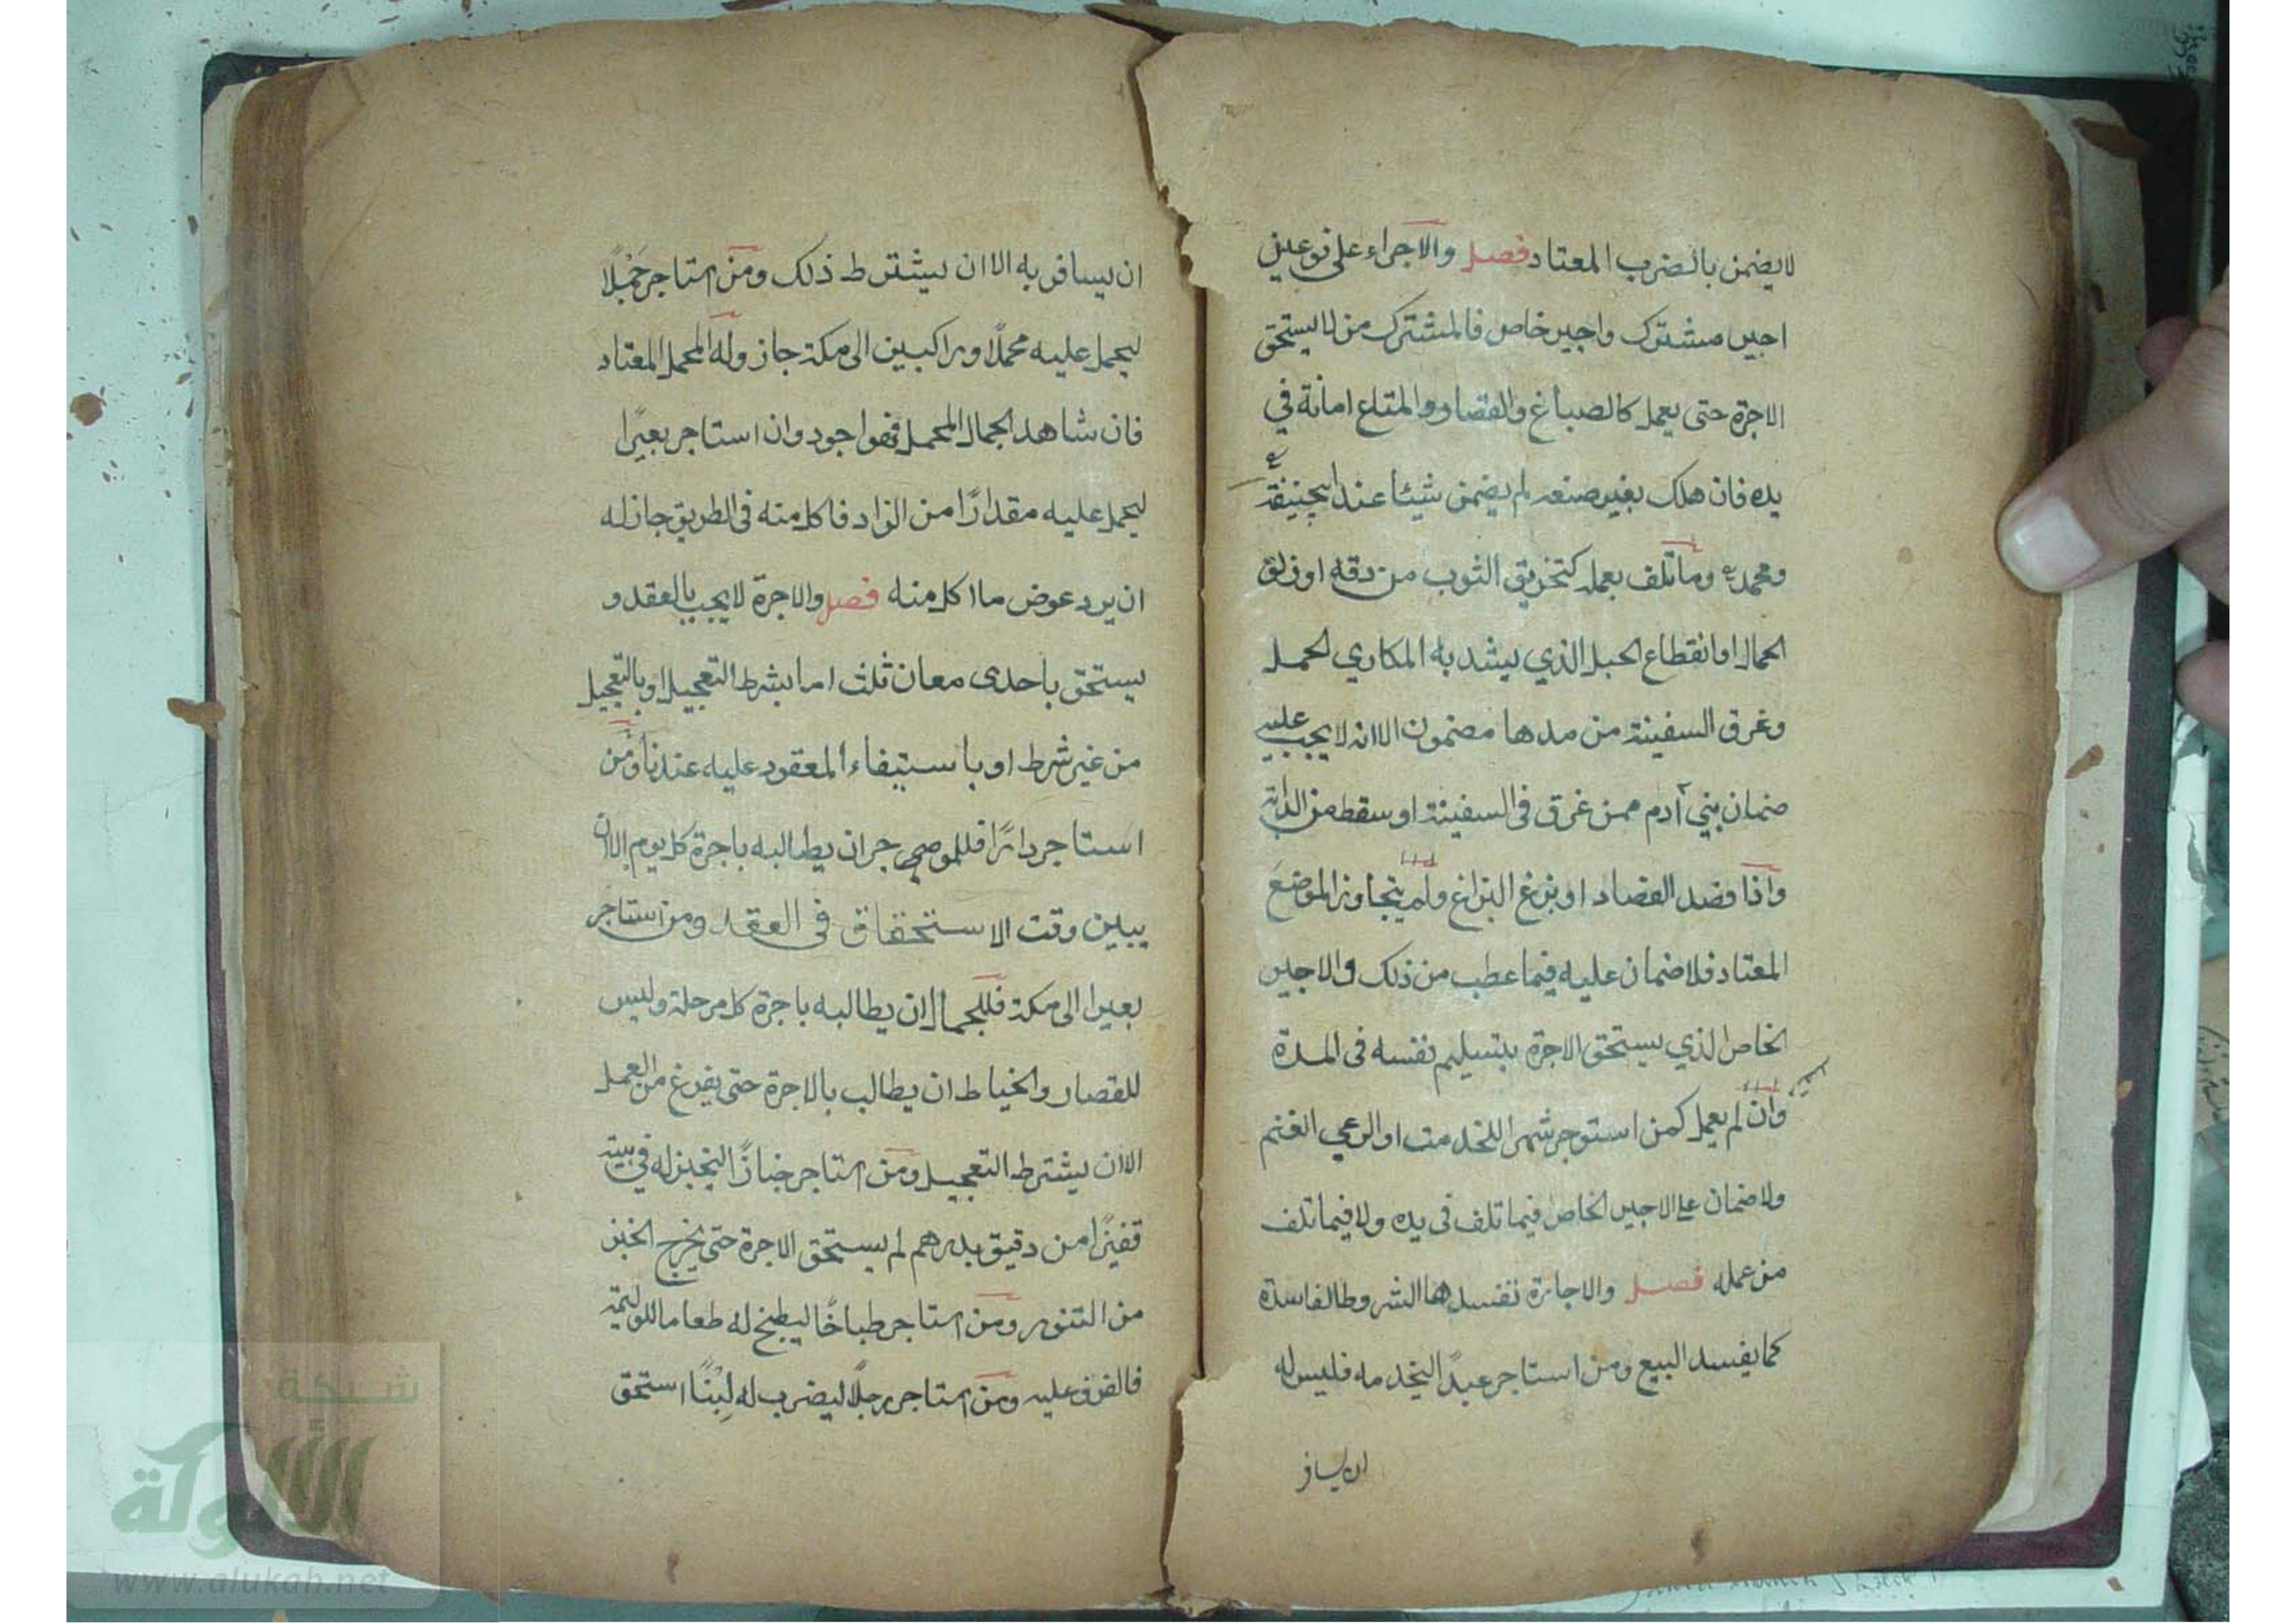 لا يضمن بالضرب المعتاد فصل والاجراء على نوعين
اجير مشترك واجير خاص فالمشترك من لا يستحق
الاجرة حتى يعمل كالصباغ والقصار والمتاع امانة في
يده فان هلك بغير صنعه لم يضمن شيئا عند ابيحنيفة
ومحمد وما تلف بعمله كتخريق الثوب من دقه او زلق
الحمال او انقطاع الحبل الذي يشد به المكاري الحمل
وغرق السفينة من مدها مضمون الا انه لا يجب عليه
ضمان بني آدم ممن غرق في السفينة او سقط من الدابة
واذا فصد الفصاد او بزغ البزاغ ولم يتجاوز الموضع
المعتاد فلا ضمان عليه فيما عطب من ذلك والاجير
الخاص الذي يستحق الاجرة بتسليم نفسه في المدة
وان لم يعمل كمن استوجر شهرا للخدمت او الرعي الغنم
ولا ضمان على الاجير الخاص فيما تلف في يده ولا فيما تلف
من عمله فصل والاجارة تفسدها الشروط الفاسدة
كما يفسد البيع ومن استاجر عبدًا ليخدمه فليس له
ان يسافر
ان يسافر به الا ان يشترط ذلك ومن استاجر جَمْلًا
ليحمل عليه محملًا وراكبين الى مكة جاز وله المحمل المعتاد
فان شاهد الجمال المحمل فهو اجود وان استاجر بعيرًا
ليحمل عليه مقدارًا من الزاد فاكل منه في الطريق جاز له
ان يرد عوض ما اكل منه فصل والاجرة لا يجب بالعقد و
يستحق باحدى معان ثلث اما بشرط التعجيل او بالتعجيل
من غير شرط او باستيفاء المعقود عليه عندنا ومن
استاجر دارًا فللموجر ان يطالبه باجرة كل يوم الا ان
يبين وقت الاستحقاق في العقد ومن استاجر
بعيرا الى مكة فللجمال ان يطالبه باجرة كل مرحلة وليس
للقصار والخياط ان يطالب بالاجرة حتى يفرغ من العمل
الا ان يشترط التعجيل ومن استاجر خبازًا ليخبز له في بيته
قفيزًا من دقيق بدرهم لم يستحق الاجرة حتى يخرج الخبز
من التنور ومن استاجر طباخًا ليطبخ له طعاما للوليمة
فالغرف عليه ومن استاجر رجلًا ليضرب له لِبْنًا استحق
شبكة
الألوكة
www.alukah.net